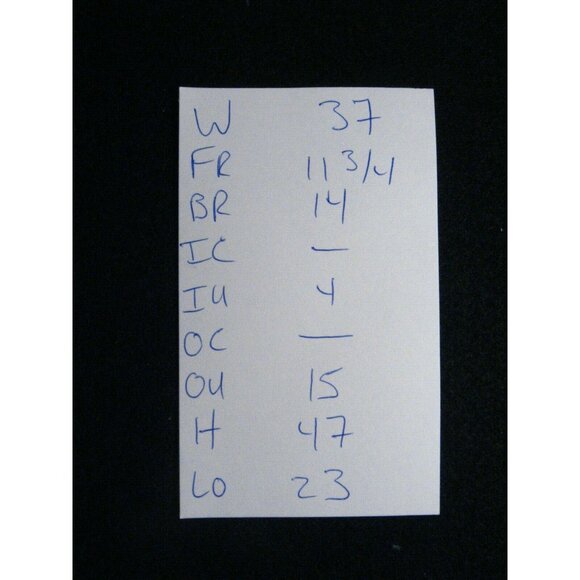 W 37
FR 11 3/4
BR 14
IC —
IU 4
OC —
OU 15
H 47
LO 23